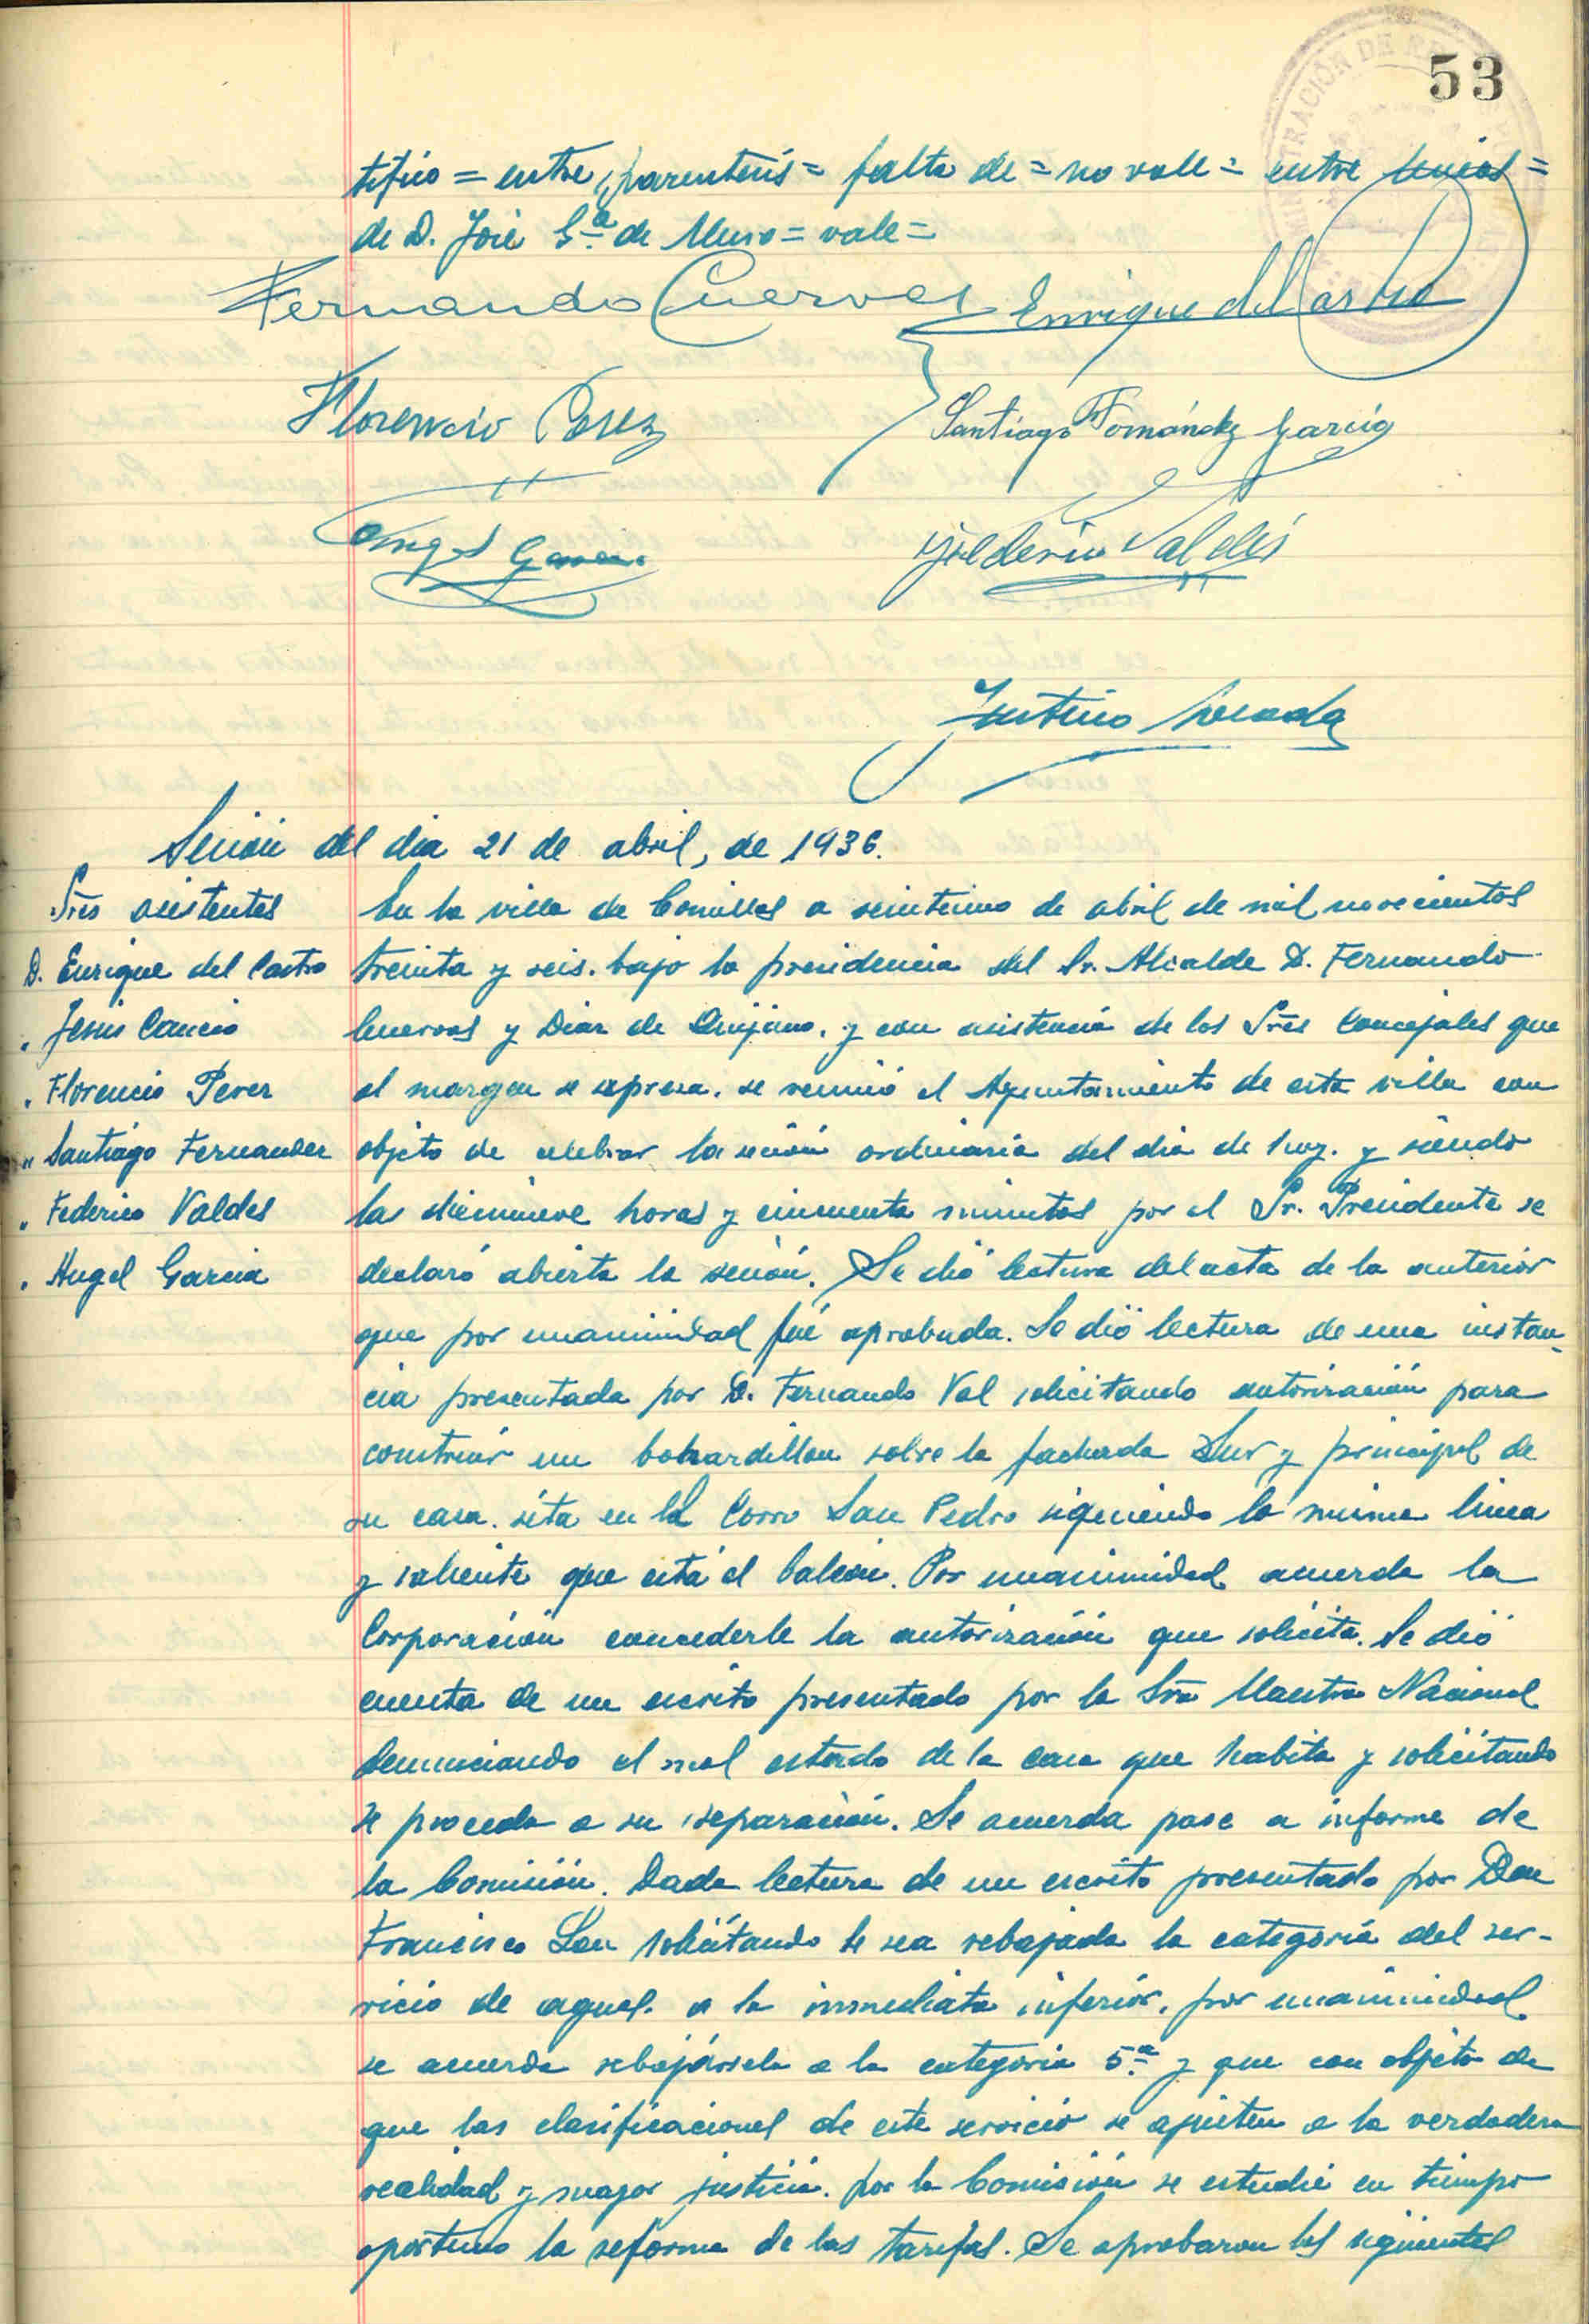 53
tifico = entre paréntesis = falta de = no vale = entre lineas =
de D. José Gª de Muro = vale =
Fernando Cuervas Enrique del Castro
Florencio Perez Santiago Fernández García
Angel Garcia Federico Valdés
Justino
Sesión del dia 21 de abril, de 1936.
Sres asistentes
D. Enrique del Castro
" Jesús Cancio
" Florencio Perez
" Santiago Fernandez
" Federico Valdes
" Angel Garcia
En la villa de Comillas a veintiuno de abril de mil novecientos
treinta y seis. bajo la presidencia del Sr. Alcalde D. Fernando
Cuervas y Diaz de Quijano. y con asistencia de los Sres Concejales que
al margen se expresa. se reunió el Ayuntamiento de esta villa con
objeto de celebrar la sesión ordinaria del dia de hoy. y siendo
las diecinueve horas y cincuenta minutos por el Sr. Presidente se
declaró abierta la sesión. Se dió lectura del acta de la anterior
que por unanimidad fué aprobada. Se dió lectura de una instan-
cia presentada por D. Fernando Val solicitando autorización para
construir un bohardillon sobre la fachada Sur y principal de
su casa. sita en la Corro San Pedro siguiendo la misma linea
y saliente que está el balcón. Por unanimidad acuerda la
Corporación concederle la autorización que solicita. Se dió
cuenta de un escrito presentado por la Sra Maestra Nacional
denunciando el mal estado de la casa que habita y solicitando
se proceda a su reparación. Se acuerda pase a informe de
la Comisión. Dada lectura de un escrito presentado por Don
Francisco San solicitando le sea rebajada la categoría del ser-
vicio de agua. a la inmediata inferior. por unanimidad
se acuerda rebajársela a la categoria 5ª y que con objeto de
que las clasificaciones de este servicio se ajusten a la verdadera
realidad y mayor justicia. por la Comisión se estudie en tiempo
oportuno la reforma de las tarifas. Se aprobaron las siguientes